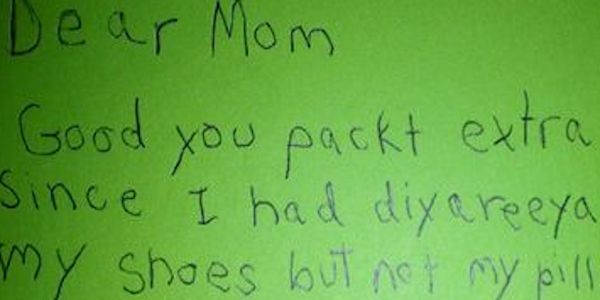 Dear Mom
Good you packt extra
Since I had diyareeya
my shoes but not my pill